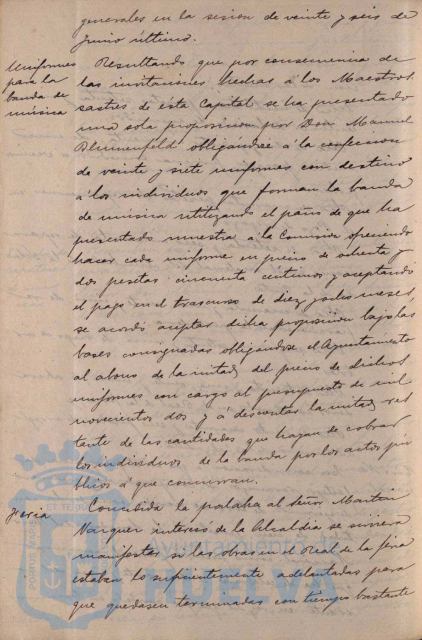 generales en la sesion de veinte y seis de
Junio último.
Uniformes
para la
banda de
música
Resultando que por consecuencia de
las invitaciones hechas á los Maestros
sastres de esta Capital se ha presentado
una sola proposicion por Don Manuel
Blumenfeld obligandose á la confeccion
de veinte y siete uniformes con destino
á los individuos que forman la banda
de música utilizando el paño de que ha
presentado muestra á la Comision ofreciendo
hacer cada uniforme en precio de ochenta y
dos pesetas cincuenta centimos y aceptando
el pago en el trascurso de diez y ocho meses,
se acordó aceptar dicha proposicion bajo las
bases consignadas obligándose el Ayuntamiento
al abono de la mitad del precio de dichos
uniformes con cargo al presupuesto de mil
novecientos dos y á descontar la mitad res
tante de las cantidades que hayan de cobrar
los individuos de la banda por los actos pú
blicos á que concurran.
Feria
Concedida la palabra al Señor Martin
Vazquez interesó de la Alcaldia se sirviera
manifestar si las obras en el Real de la feria
estaban lo suficientemente adelantadas para
que quedasen terminadas con tiempo bastante
PORTUS MARIS
ET TERRÆ
Ayuntamiento de
HUELVA